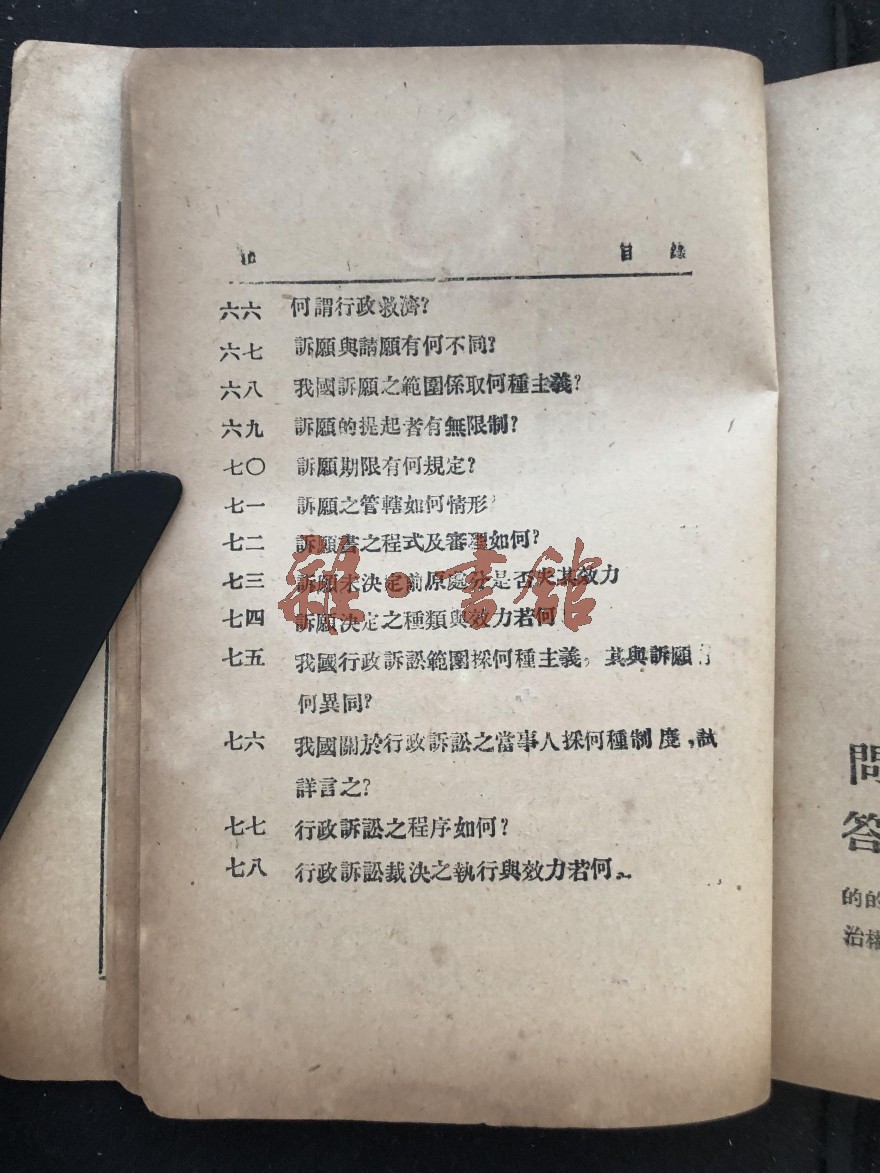 目錄
六六 何謂行政救濟?
六七 訴願與請願有何不同?
六八 我國訴願之範圍係取何種主義?
六九 訴願的提起者有無限制?
七〇 訴願期限有何規定?
七一 訴願之管轄如何情形
七二 訴願書之程式及審理如何?
七三 訴願未決定前原處分是否失其效力
七四 訴願決定之種類與效力若何
七五 我國行政訴訟範圍採何種主義,其與訴願
何異同?
七六 我國關於行政訴訟之當事人採何種制度,試
詳言之?
七七 行政訴訟之程序如何?
七八 行政訴訟裁決之執行與效力若何
雜·書館
問
答
的的
治權